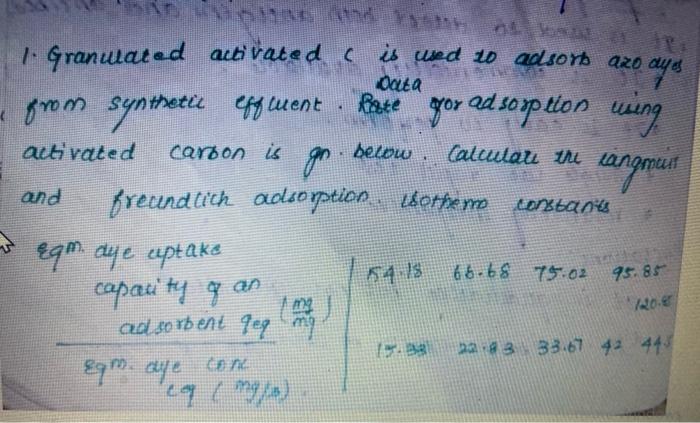 1. Granulated activated c is used to adsorb azo dyes
Data
from synthetic effluent. Rate for adsorption using
activated carbon is gn. below. Calculate the langmuir
and freundlich adsorption isotherm constants
Eqm. dye uptake 54.18 66.68 75.02 95.85
capacity of an 120.8
adsorbent qeq (mg/mg)
22.83 33.67 42 44
Eqm. dye conc
ceq (mg/